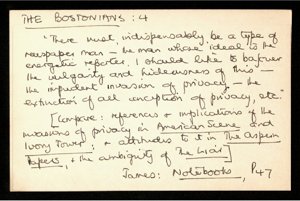 THE BOSTONIANS : 4
"There must indispensably be a type of
newspaper man — the man whose ideal is the
energetic reporter. I should like to bafouer
the vulgarity and hideousness of this —
the impudent invasion of privacy — the
extinction of all conception of privacy, etc."
[Compare : references & implications of the
invasions of privacy in American Scene and
Ivory Tower; & attitudes to it in The Aspern
Papers, & the ambiguity of The Liar]
James: Notebooks, P47